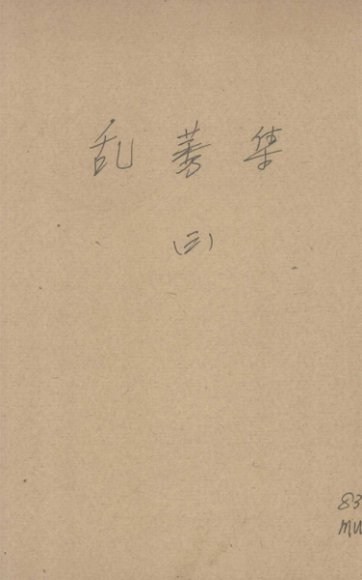 乱 集
(三)
83
MU